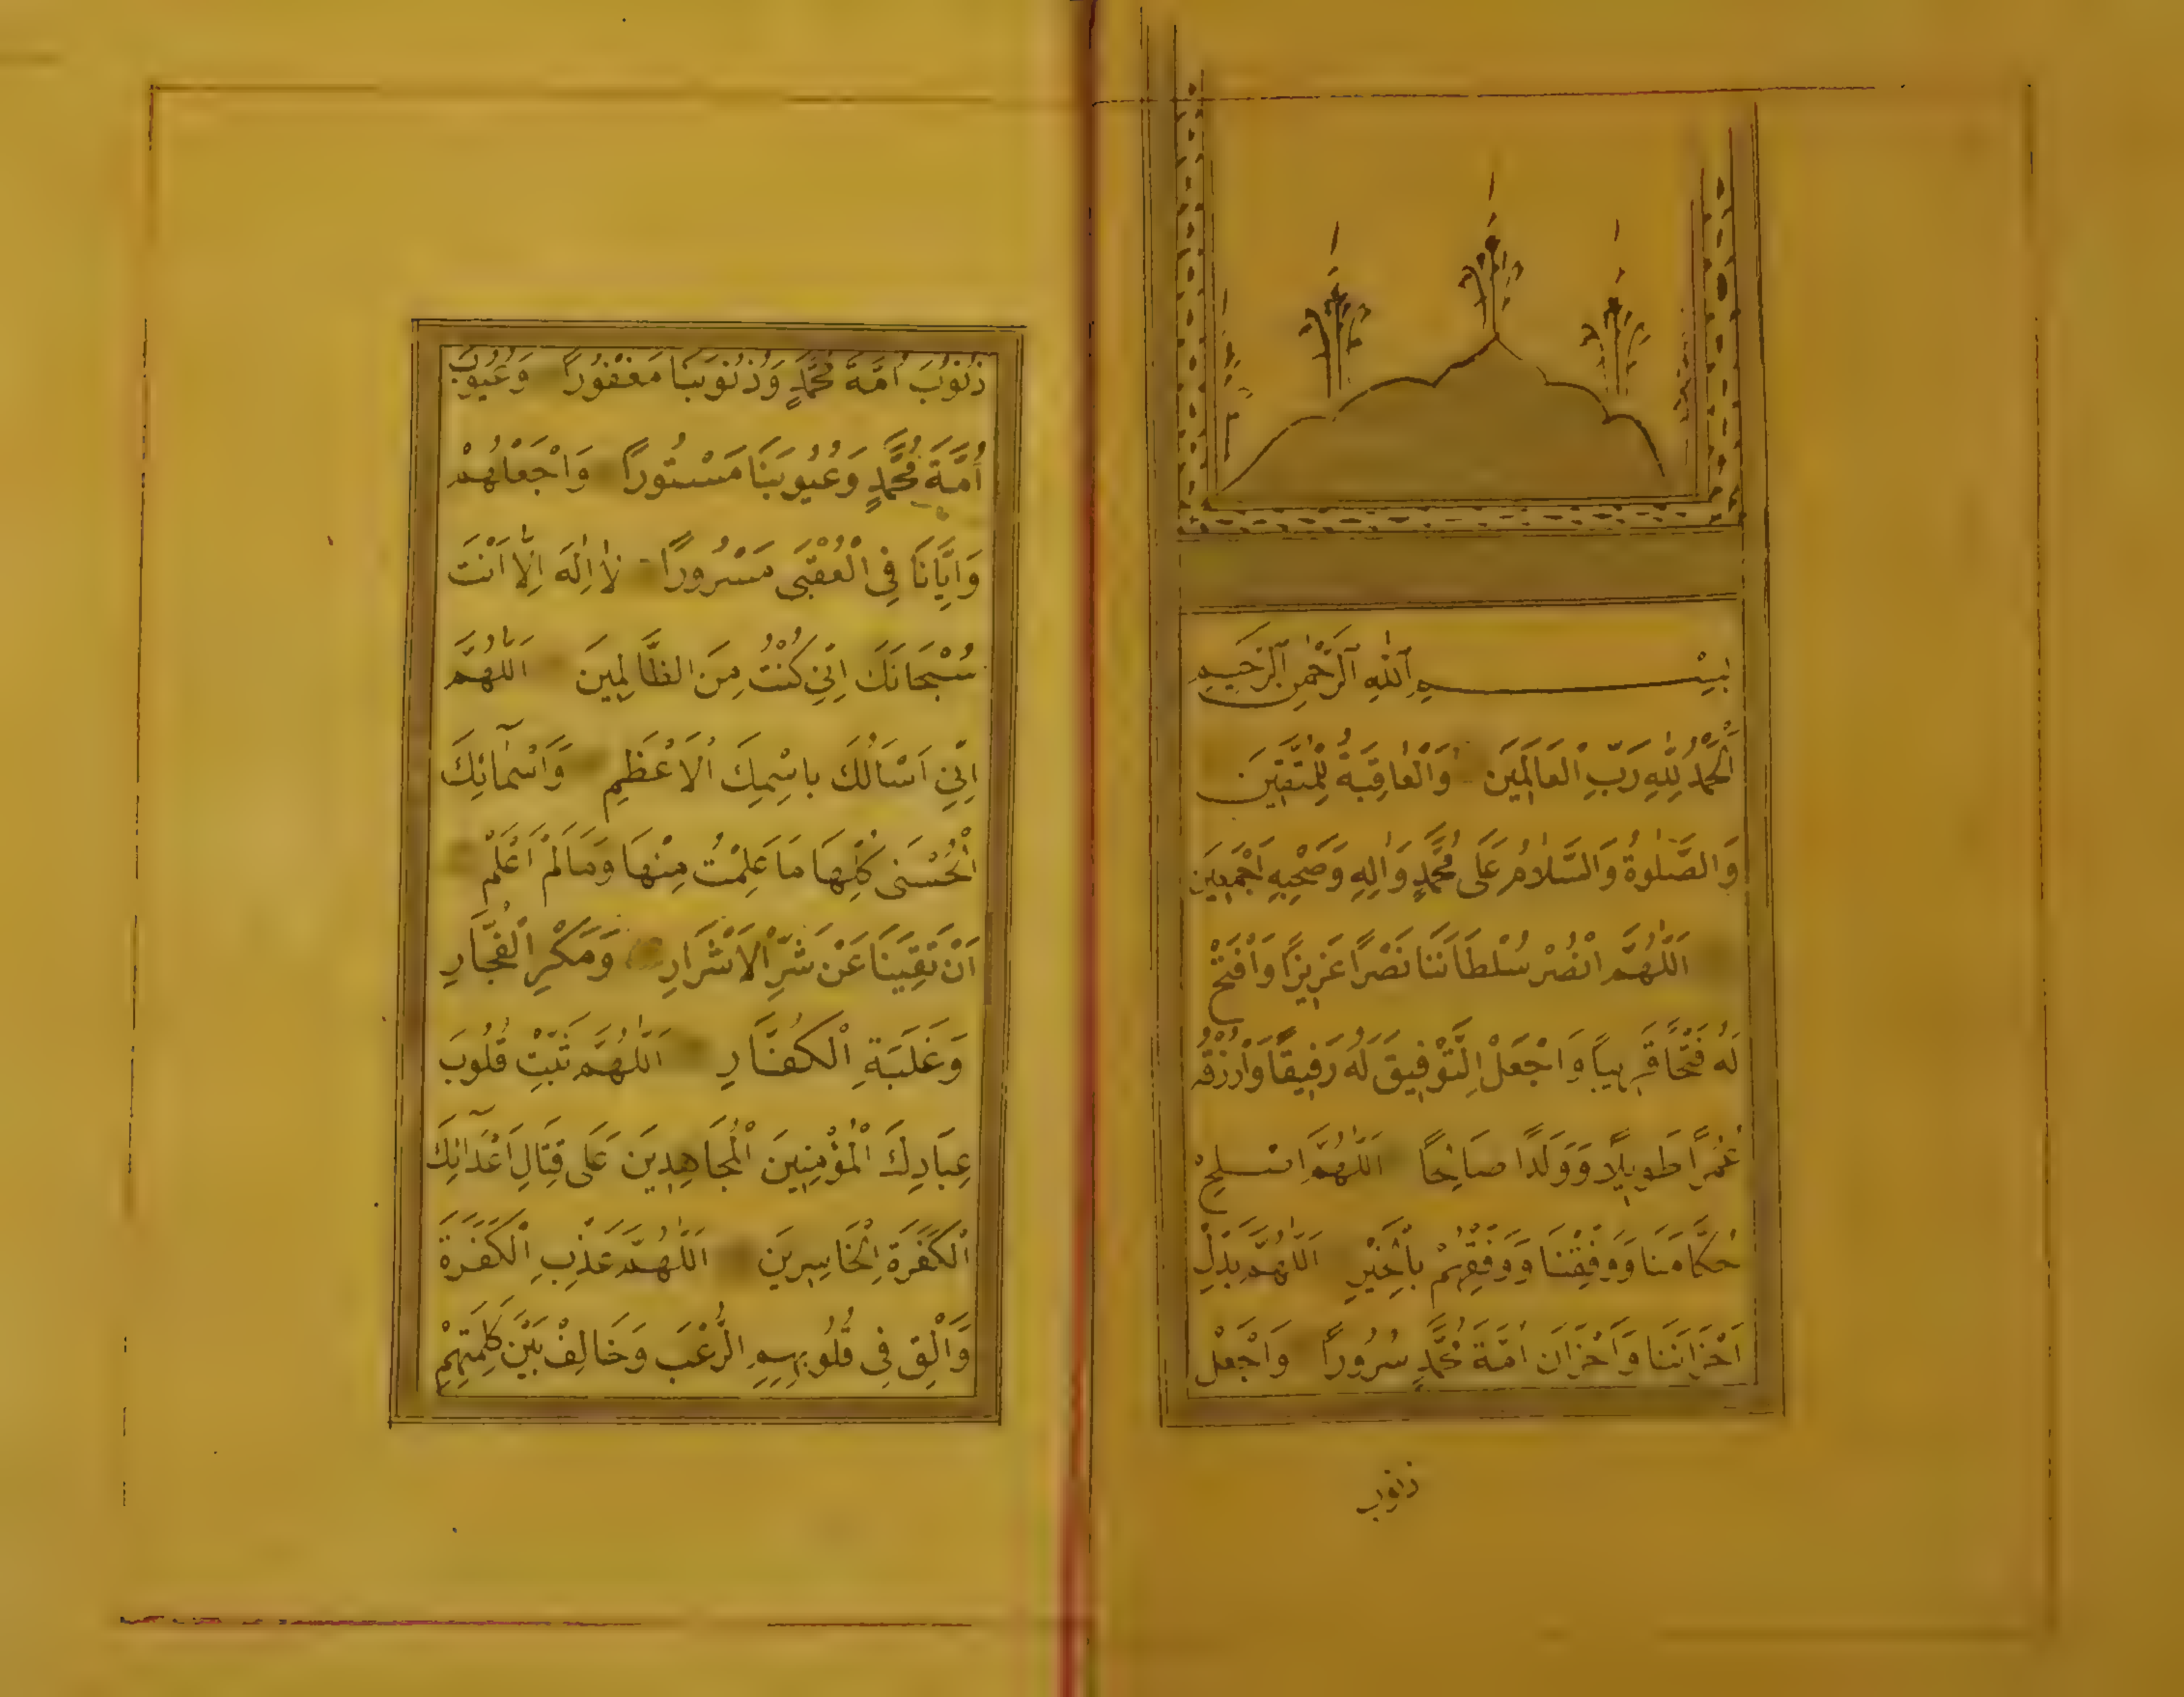 بِسْمِ اللّٰهِ الرَّحْمٰنِ الرَّحِيمِ
اَلْحَمْدُ لِلّٰهِ رَبِّ الْعَالَمَيِنَ وَالْعَاقِبَةُ لِلْمُتَّقَيِنَ
وَالصَّلٰوةُ وَالسَّلَامُ عَلَى مُحَمَّدٍ وَاٰلِهِ وَصَحْبِهِ اَجْمَعِيَن
اَللّٰهُمَّ انْصُرْ سُلْطَانَنَا نَصْرًا عَزِيزًا وَافْتَحْ
لَهُ فَتْحًا قَرِيبًا وَاجْعَلْ التَّوْفِيقَ لَهُ رَفِيقًا وَارْزُقْهُ
عُمْرًا طَوِيلًا وَوَلَدًا صَالِحًا اَللّٰهُمَّ اَصْلِحْ
حُكَّامَنَا وَوَفِّقْنَا وَوَفِّقْهُمْ بِالْخَيْرِ اَللّٰهُمَّ بَدِّلْ
اَحْزَانَنَا وَاَحْزَانَ اُمَّةِ مُحَمَّدٍ سُرُورًا وَاجْعَلْ
ذنوب
ذُنُوبَ اُمَّةِ مُحَمَّدٍ وَذُنُوبَنَا مَغْفُورًا وَعُيُوبَ
اُمَّةِ مُحَمَّدٍ وَعُيُوبَنَا مَسْتُورًا وَاجْعَلْهُمْ
وَاِيَّانَا فِي الْعُقْبَى مَسْرُورًا لَا اِلٰهَ اِلَّا اَنْتَ
سُبْحَانَكَ اِنِّي كُنْتُ مِنَ الظَّالِمِينَ اَللّٰهُمَّ
اِنِّي اَسْأَلُكَ بِاسْمِكَ الْاَعْظَمِ وَاَسْمَائِكَ
الْحُسْنَى كُلِّهَا مَا عَلِمْتُ مِنْهَا وَمَا لَمْ اَعْلَمْ
اَنْ تَقِيَنَا عَنْ شَرِّ الْاَشْرَارِ وَمَكْرِ الْفُجَّارِ
وَغَلَبَةِ الْكُفَّارِ اَللّٰهُمَّ ثَبِّتْ قُلُوبَ
عِبَادِكَ الْمُؤْمِنِينَ الْمُجَاهِدِينَ عَلَى قِتَالِ اَعْدَائِكَ
الْكَفَرَةِ الْخَاسِرِيَن اَللّٰهُمَّ عَذِّبِ الْكَفَرَةَ
وَاَلْقِ فِي قُلُوبِهِمِ الرُّعْبَ وَخَالِفْ بَيْنَ كَلِمَتِهِمْ